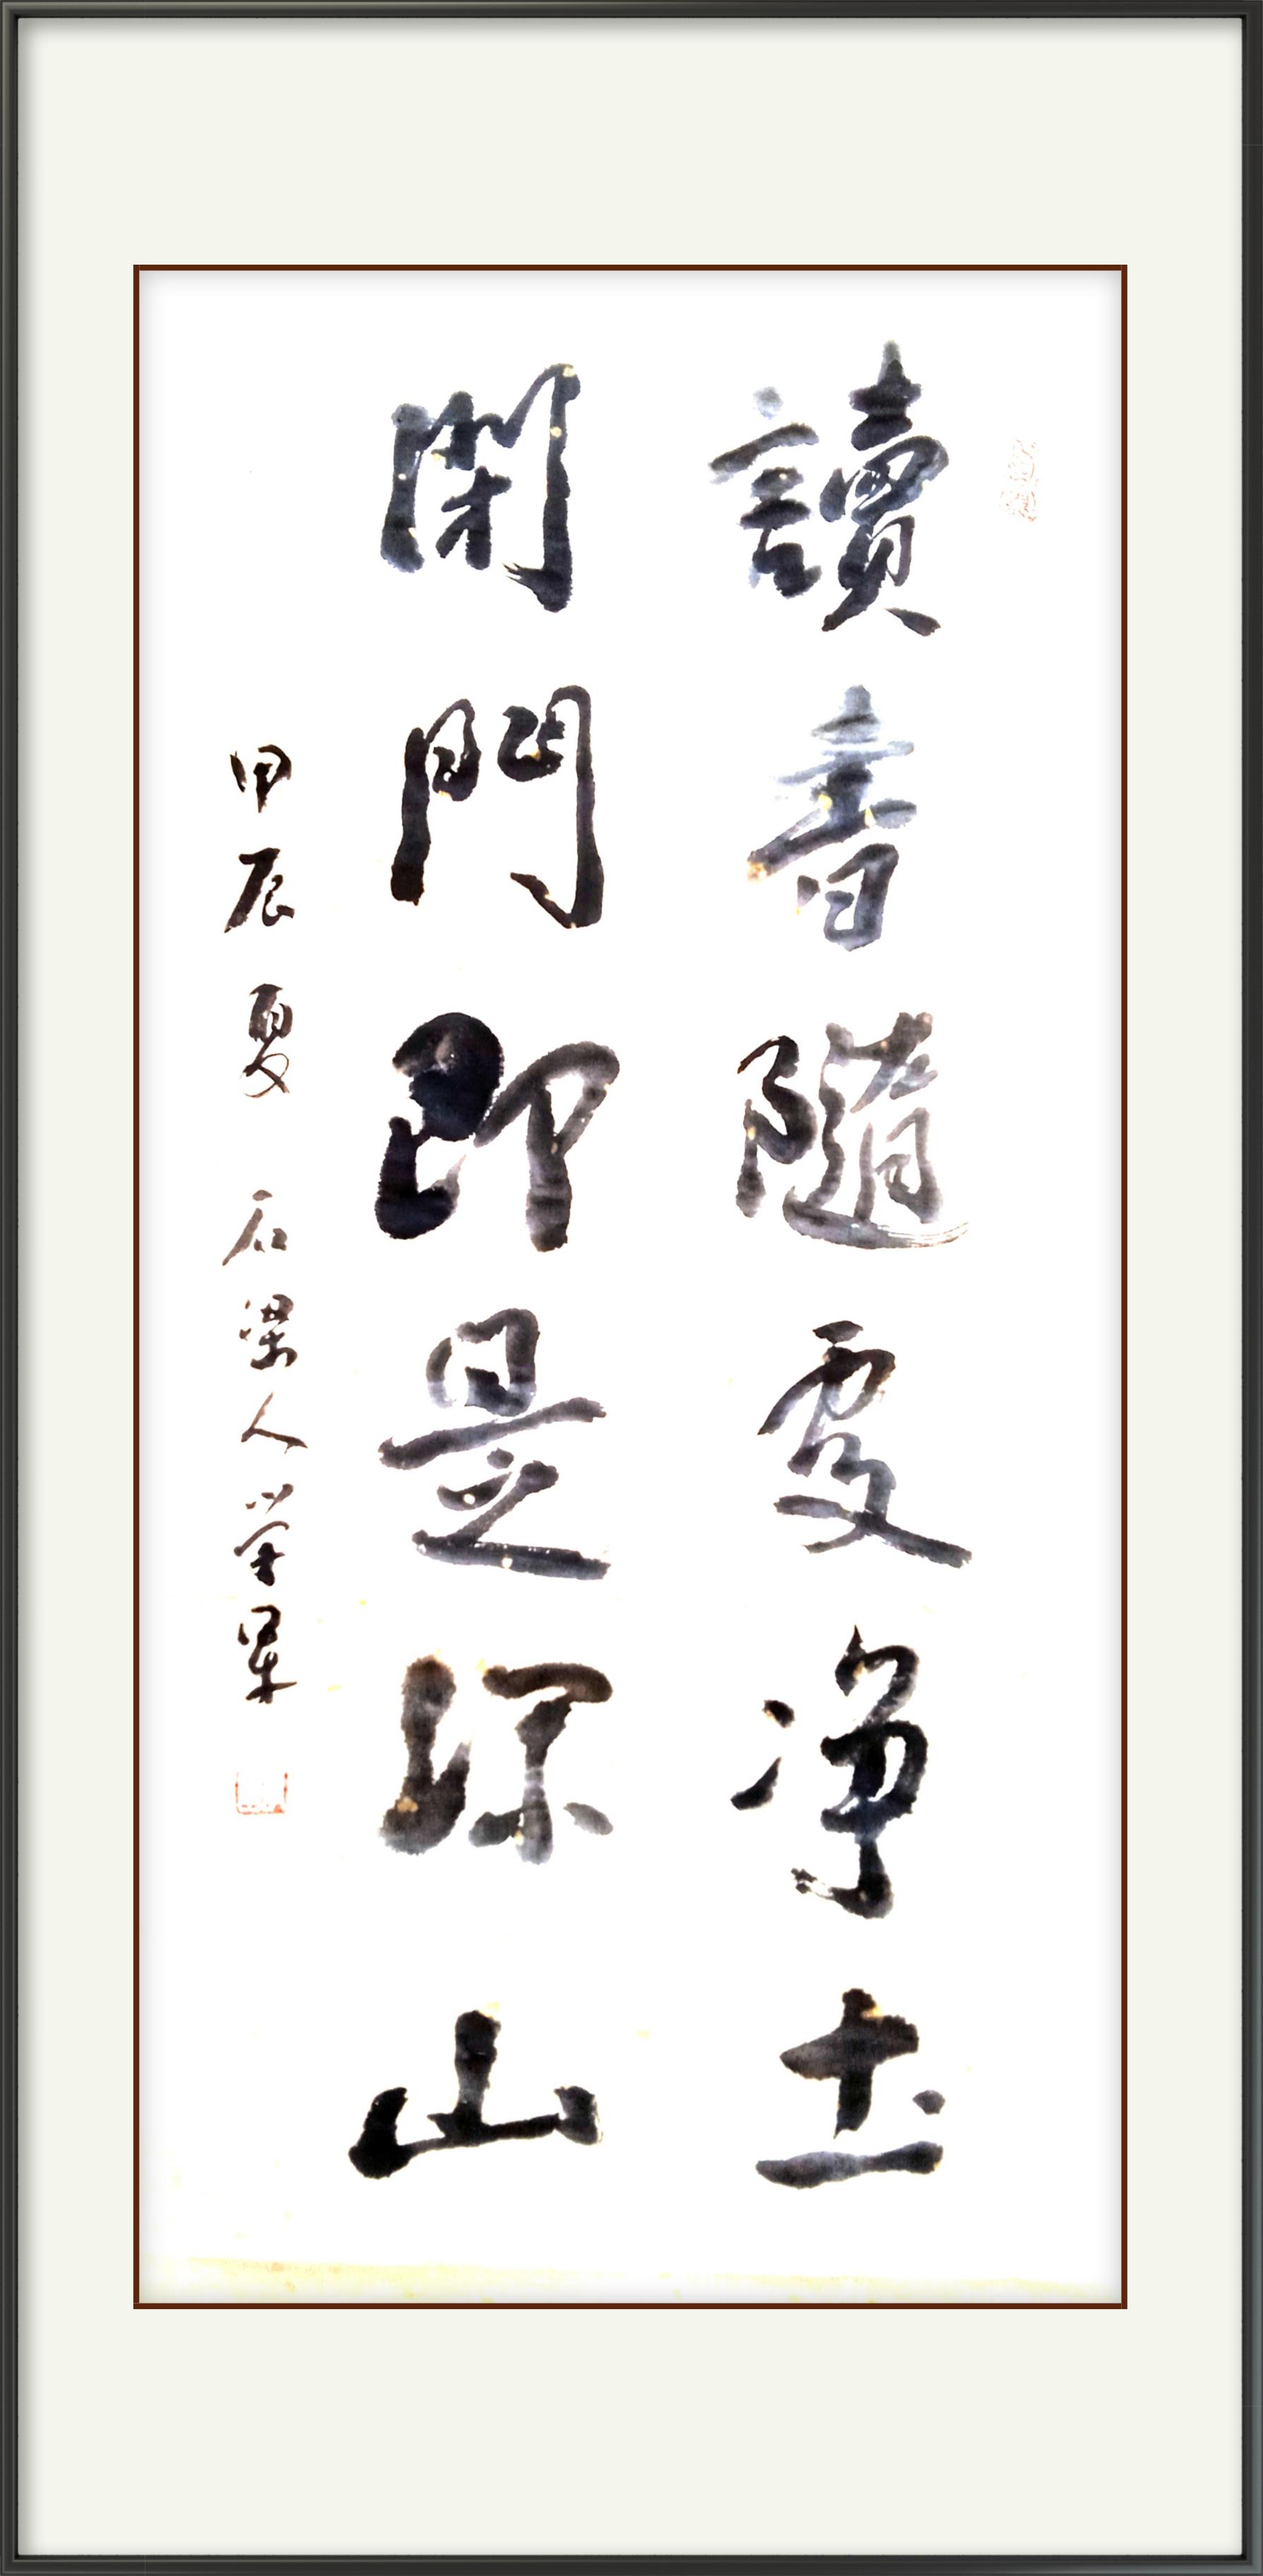 讀書隨處净土
閉門即是深山
甲辰夏 石梁人